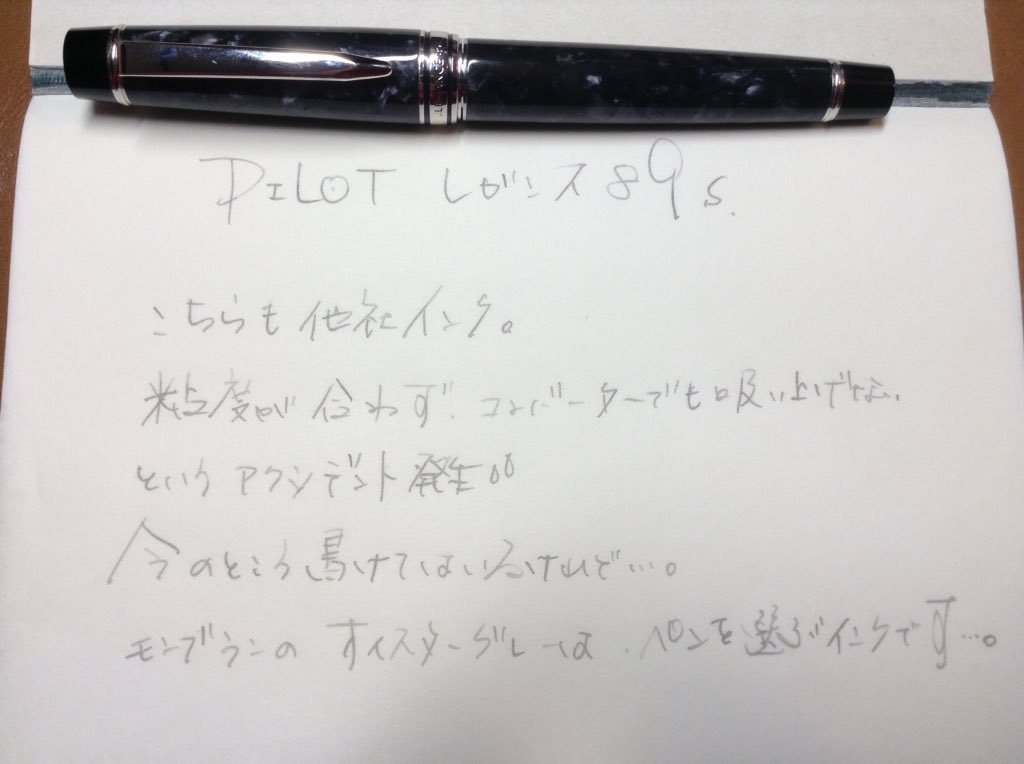 PILOT レガンス89s.
こちらも他社インク。
粘度が合わず、コンバーターでも吸い上げない、
というアクシデント発生!!
今のところ書けてはいるけれど…。
モンブランの オイスターグレーは、ペンを選ぶインクです…。